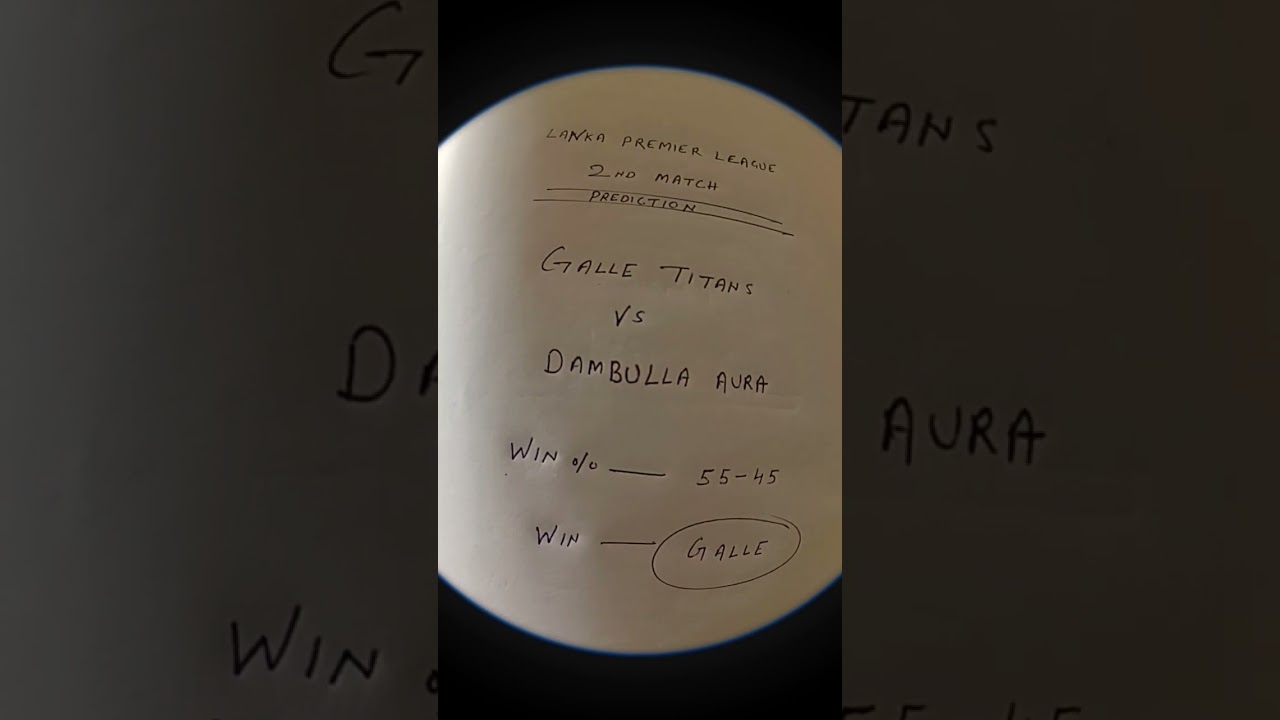 LANKA PREMIER LEAGUE
2ND MATCH
PREDICTION
GALLE TITANS
VS
DAMBULLA AURA
WIN % — 55-45
WIN — GALLE